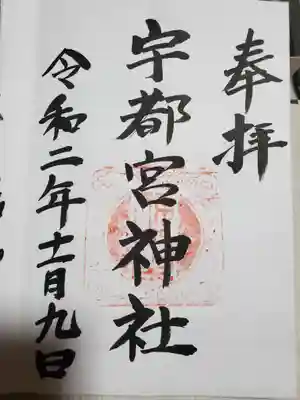 奉拝
宇都宮神社
令和二年十一月九日